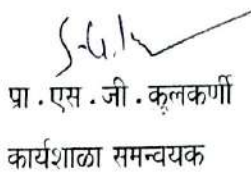 प्रा . एस . जी . कुलकर्णी
कार्यशाळा समन्वयक